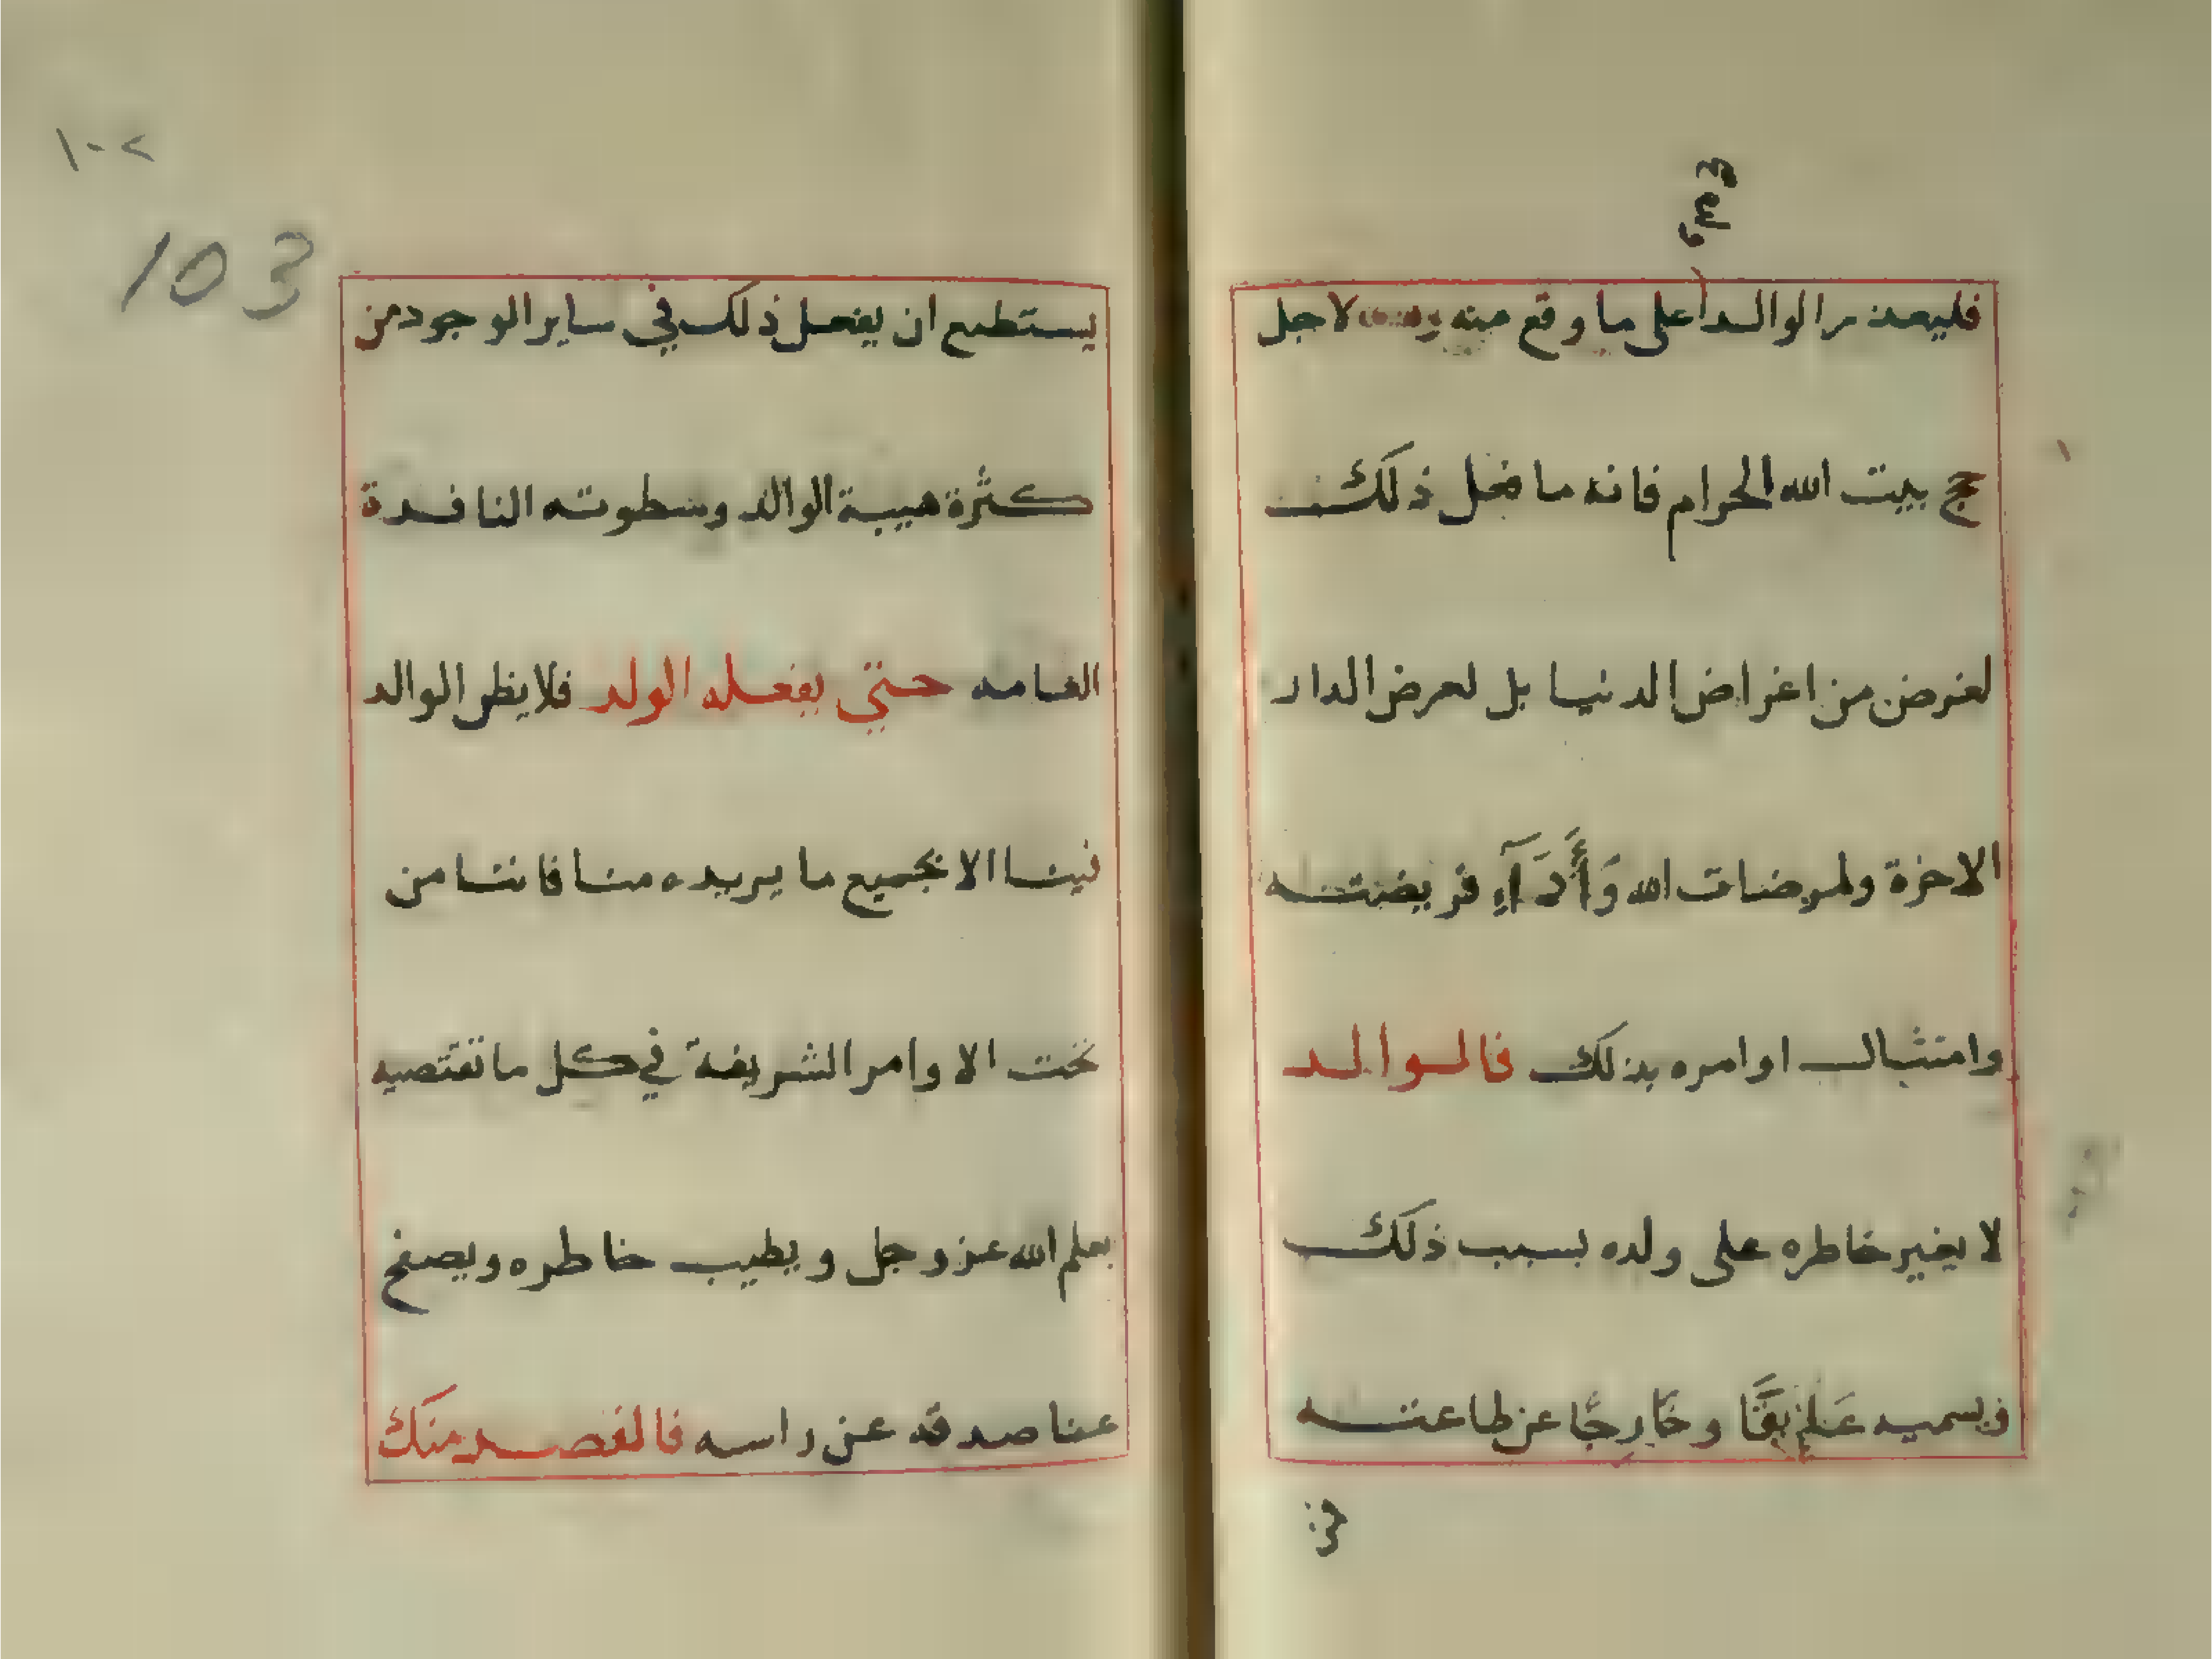 فليعذر الوالد على ما وقع منه لاجل
حج بيت الله الحرام فانه ما فعل ذلك
لغرض من اغراض الدنيا بل لعرض الدار
الاخرة ولمرضات الله وَأَدَآءِ فريضته
وامتثال اوامره بذلك فالوالد
لا يغير خاطره على ولده بسبب ذلك
ويسميه وخارجًا عن طاعته
١٠٢
103
يستطيع ان يفعل ذلك في ساير الوجود من
كثرة هيبة الوالد وسطوته النافدة
حتي يفعله الولد فلا يظن الوالد
فينا الا بجميع ما يريده منا فاننا من
تحت الاوامر الشريفة في كل ما تقتضيه
يعلم الله عز وجل ويطيب خاطره ويصفح
عنا صدقه عن راسه فالقصد منك